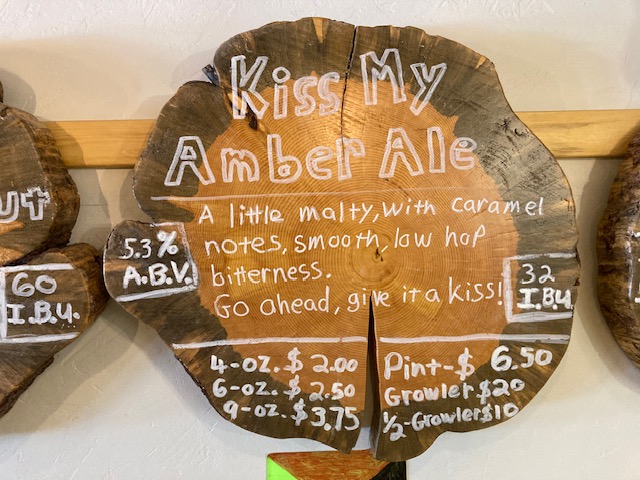 Kiss My
Amber Ale
A little malty, with caramel
notes, smooth, low hop
bitterness.
Go ahead, give it a kiss!
5.3%
A.B.V.
32
I.B.U
4-oz. $ 2.00
6-oz. $ 2.50
9-oz. $3.75
Pint-$ 6.50
Growler $20
1/2-Growler $10
60
I.B.U.